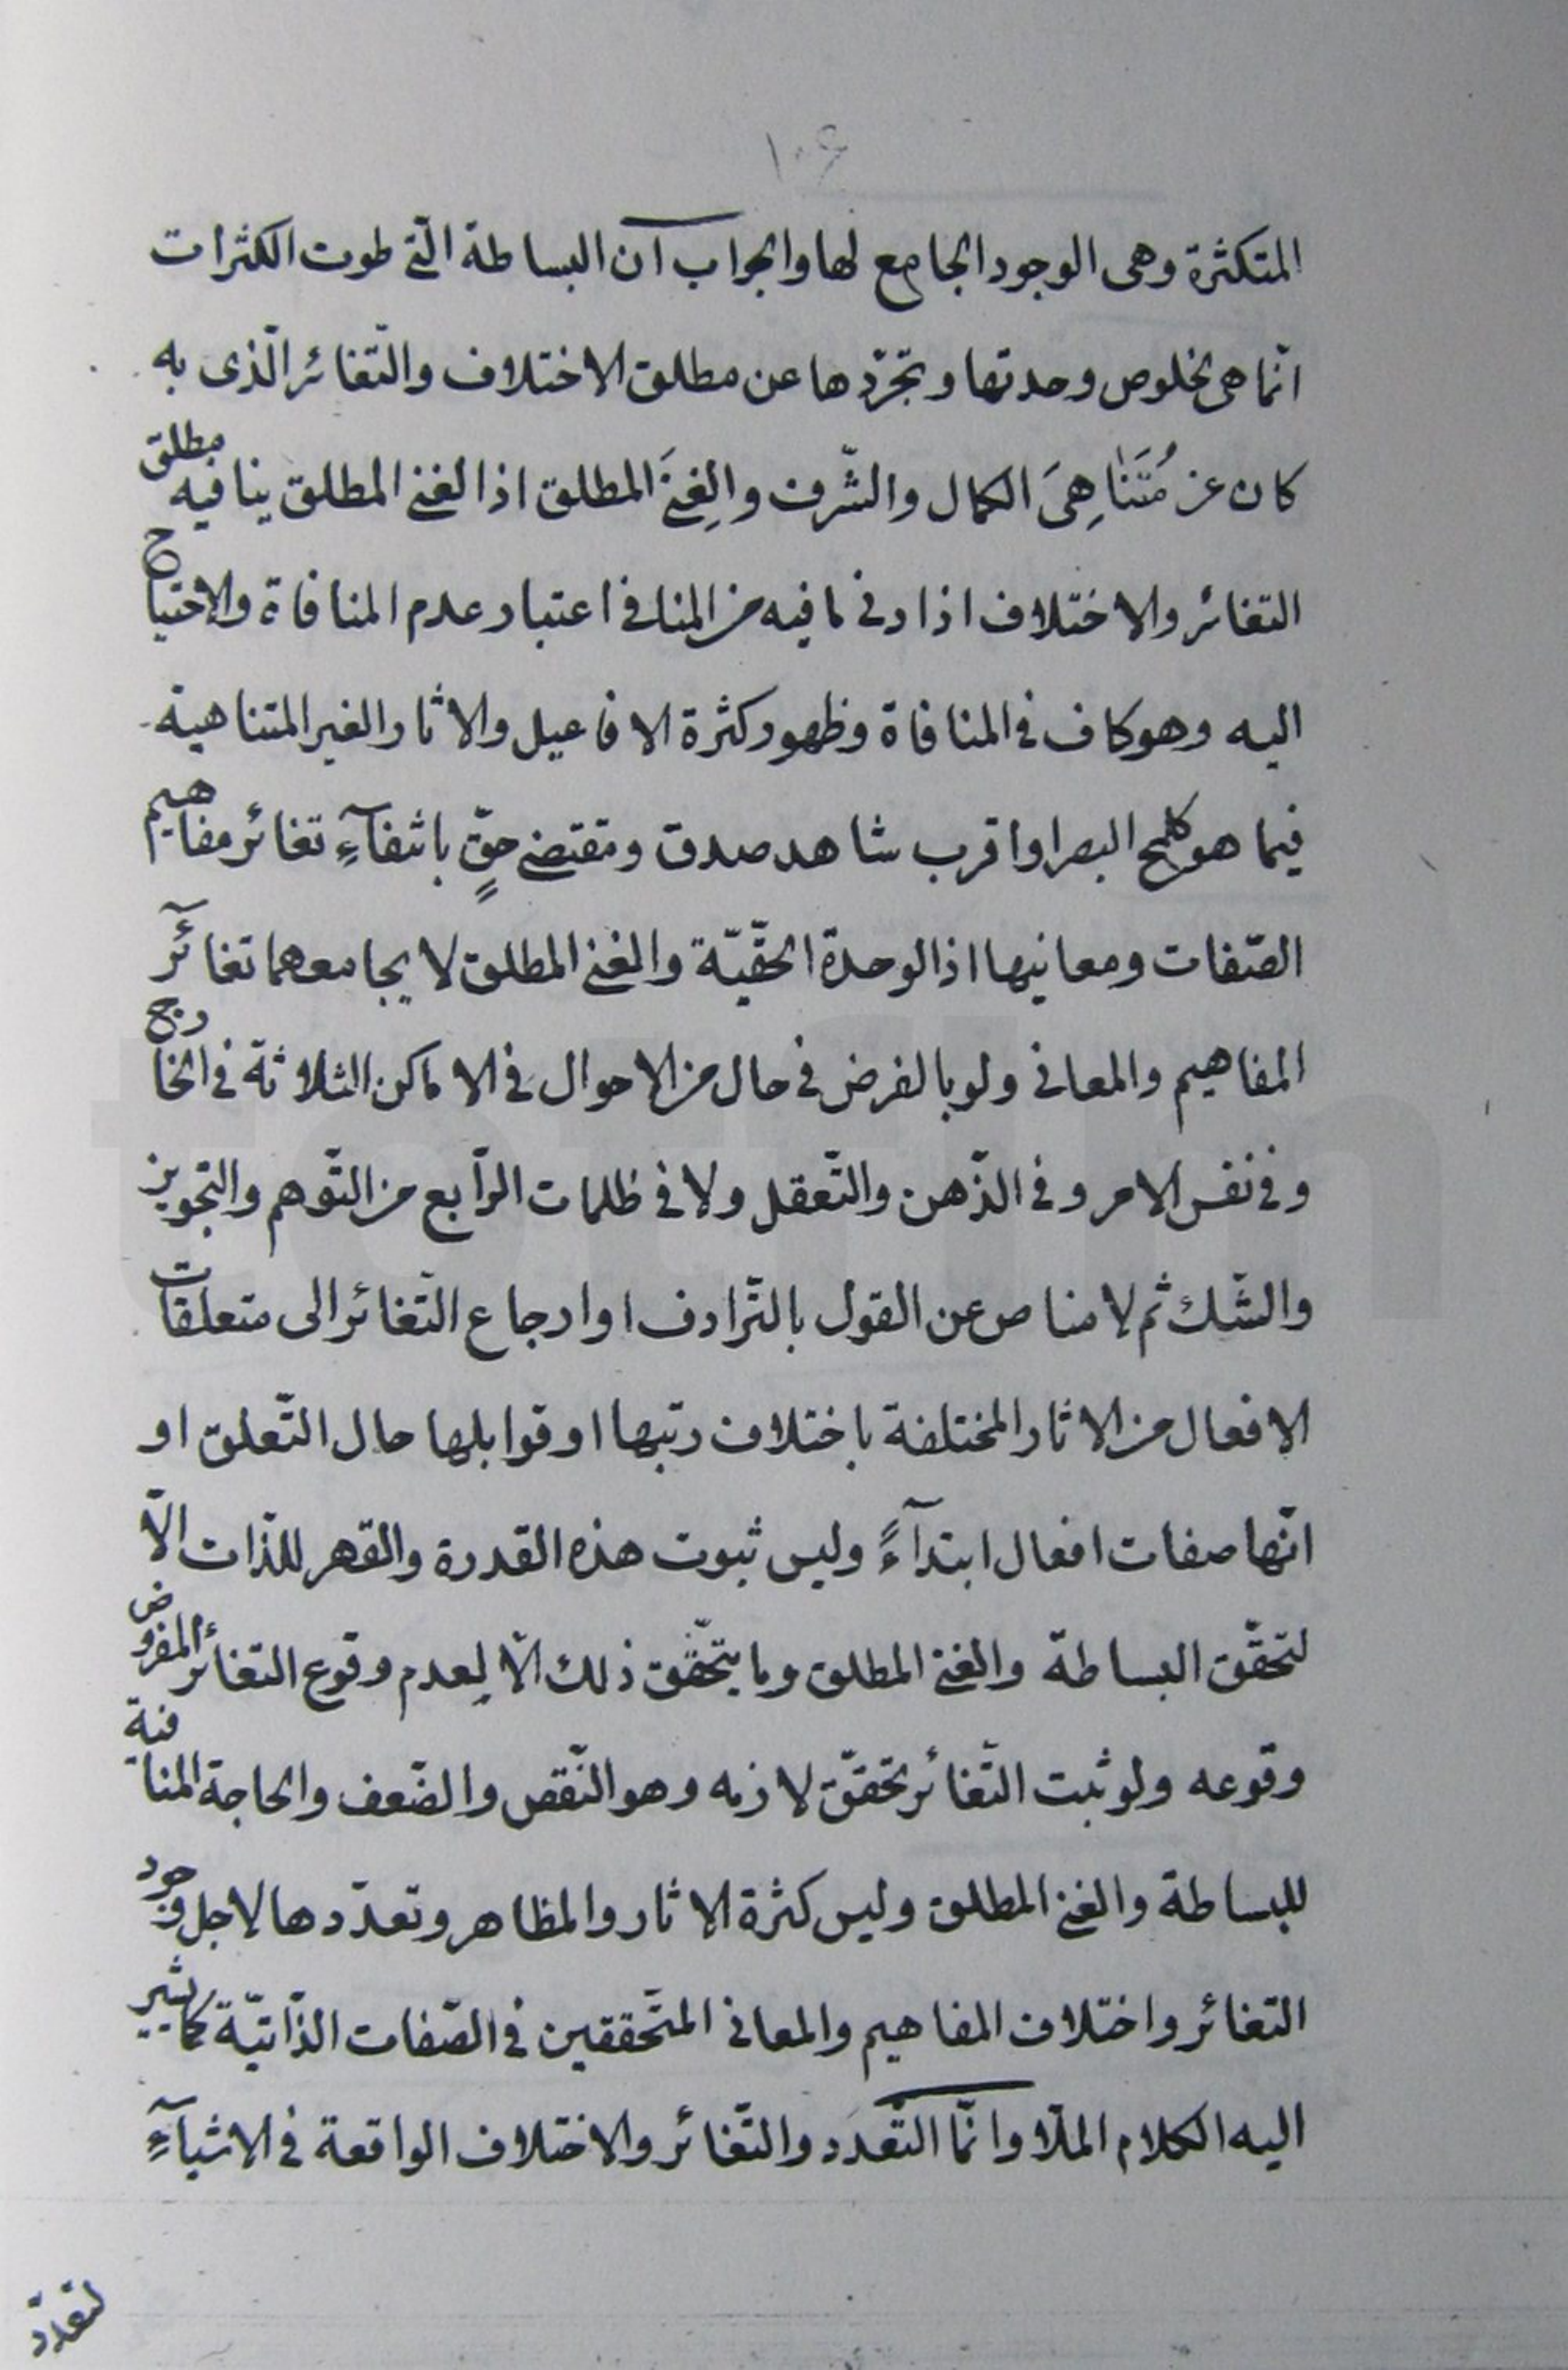 ١٠۶
المتكثرة وهى الوجود الجامع لها والجواب ان البساطة الّتى طوت الكثرات
انّما هى لخلوص وحدتها وتجرّدها عن مطلق الاختلاف والتّغائر الّذى به
كان عن مُتَنَاهِىَ الكمال والشّرف والغِنَى المطلق اذ الغنى المطلق ينافيه مطلق
التغائر والاختلاف اذ ادنى ما فيه من المنافى اعتبار عدم المنافاة والاحتياج
اليه وهو كاف فى المنافاة وظهور كثرة الافاعيل والاثار الغير المتناهية
فيما هو كلمح البصر او اقرب شاهد صدق ومقتضى حقٍّ بانتفآءِ تغائر مفاهيم
الصّفات ومعانيها اذ الوحدة الحقّيّة والغنى المطلق لا يجامعهما تغائر
المفاهيم والمعانى ولو بالفرض فى حال من الاحوال فى الاماكن الثلاثة فى الخارج
وفى نفس الامر وفى الذّهن والتّعقل ولا فى ظلمات الرّابع من التّوهم والتّجويز
والشّك ثم لا مناص عن القول بالتّرادف او ارجاع التّغائر الى متعلقات
الافعال من الاثار المختلفة باختلاف رتبها او قوابلها حال التّعلق او
انّها صفات افعال ابتدآءً وليس ثبوت هذه القدرة والقهر للذّات الّا
لتحقّق البساطة والغنى المطلق وما يتحقّق ذلك الّا لِعدم وقوع التغائر المفروض
وقوعه ولو ثبت التّغائر تحقّق لازمه وهو النّقص والضّعف والحاجة المنافية
للبساطة والغنى المطلق وليس كثرة الاثار والمظاهر وتعدّدها لاجل وجود
التغائر واختلاف المفاهيم والمعانى المتحّققين فى الصّفات الذّاتيّة كما يشير
اليه الكلام الملّا وانّما التّعدد والتّغائر والاختلاف الواقعة فى الاشيآءِ
لتعدّد